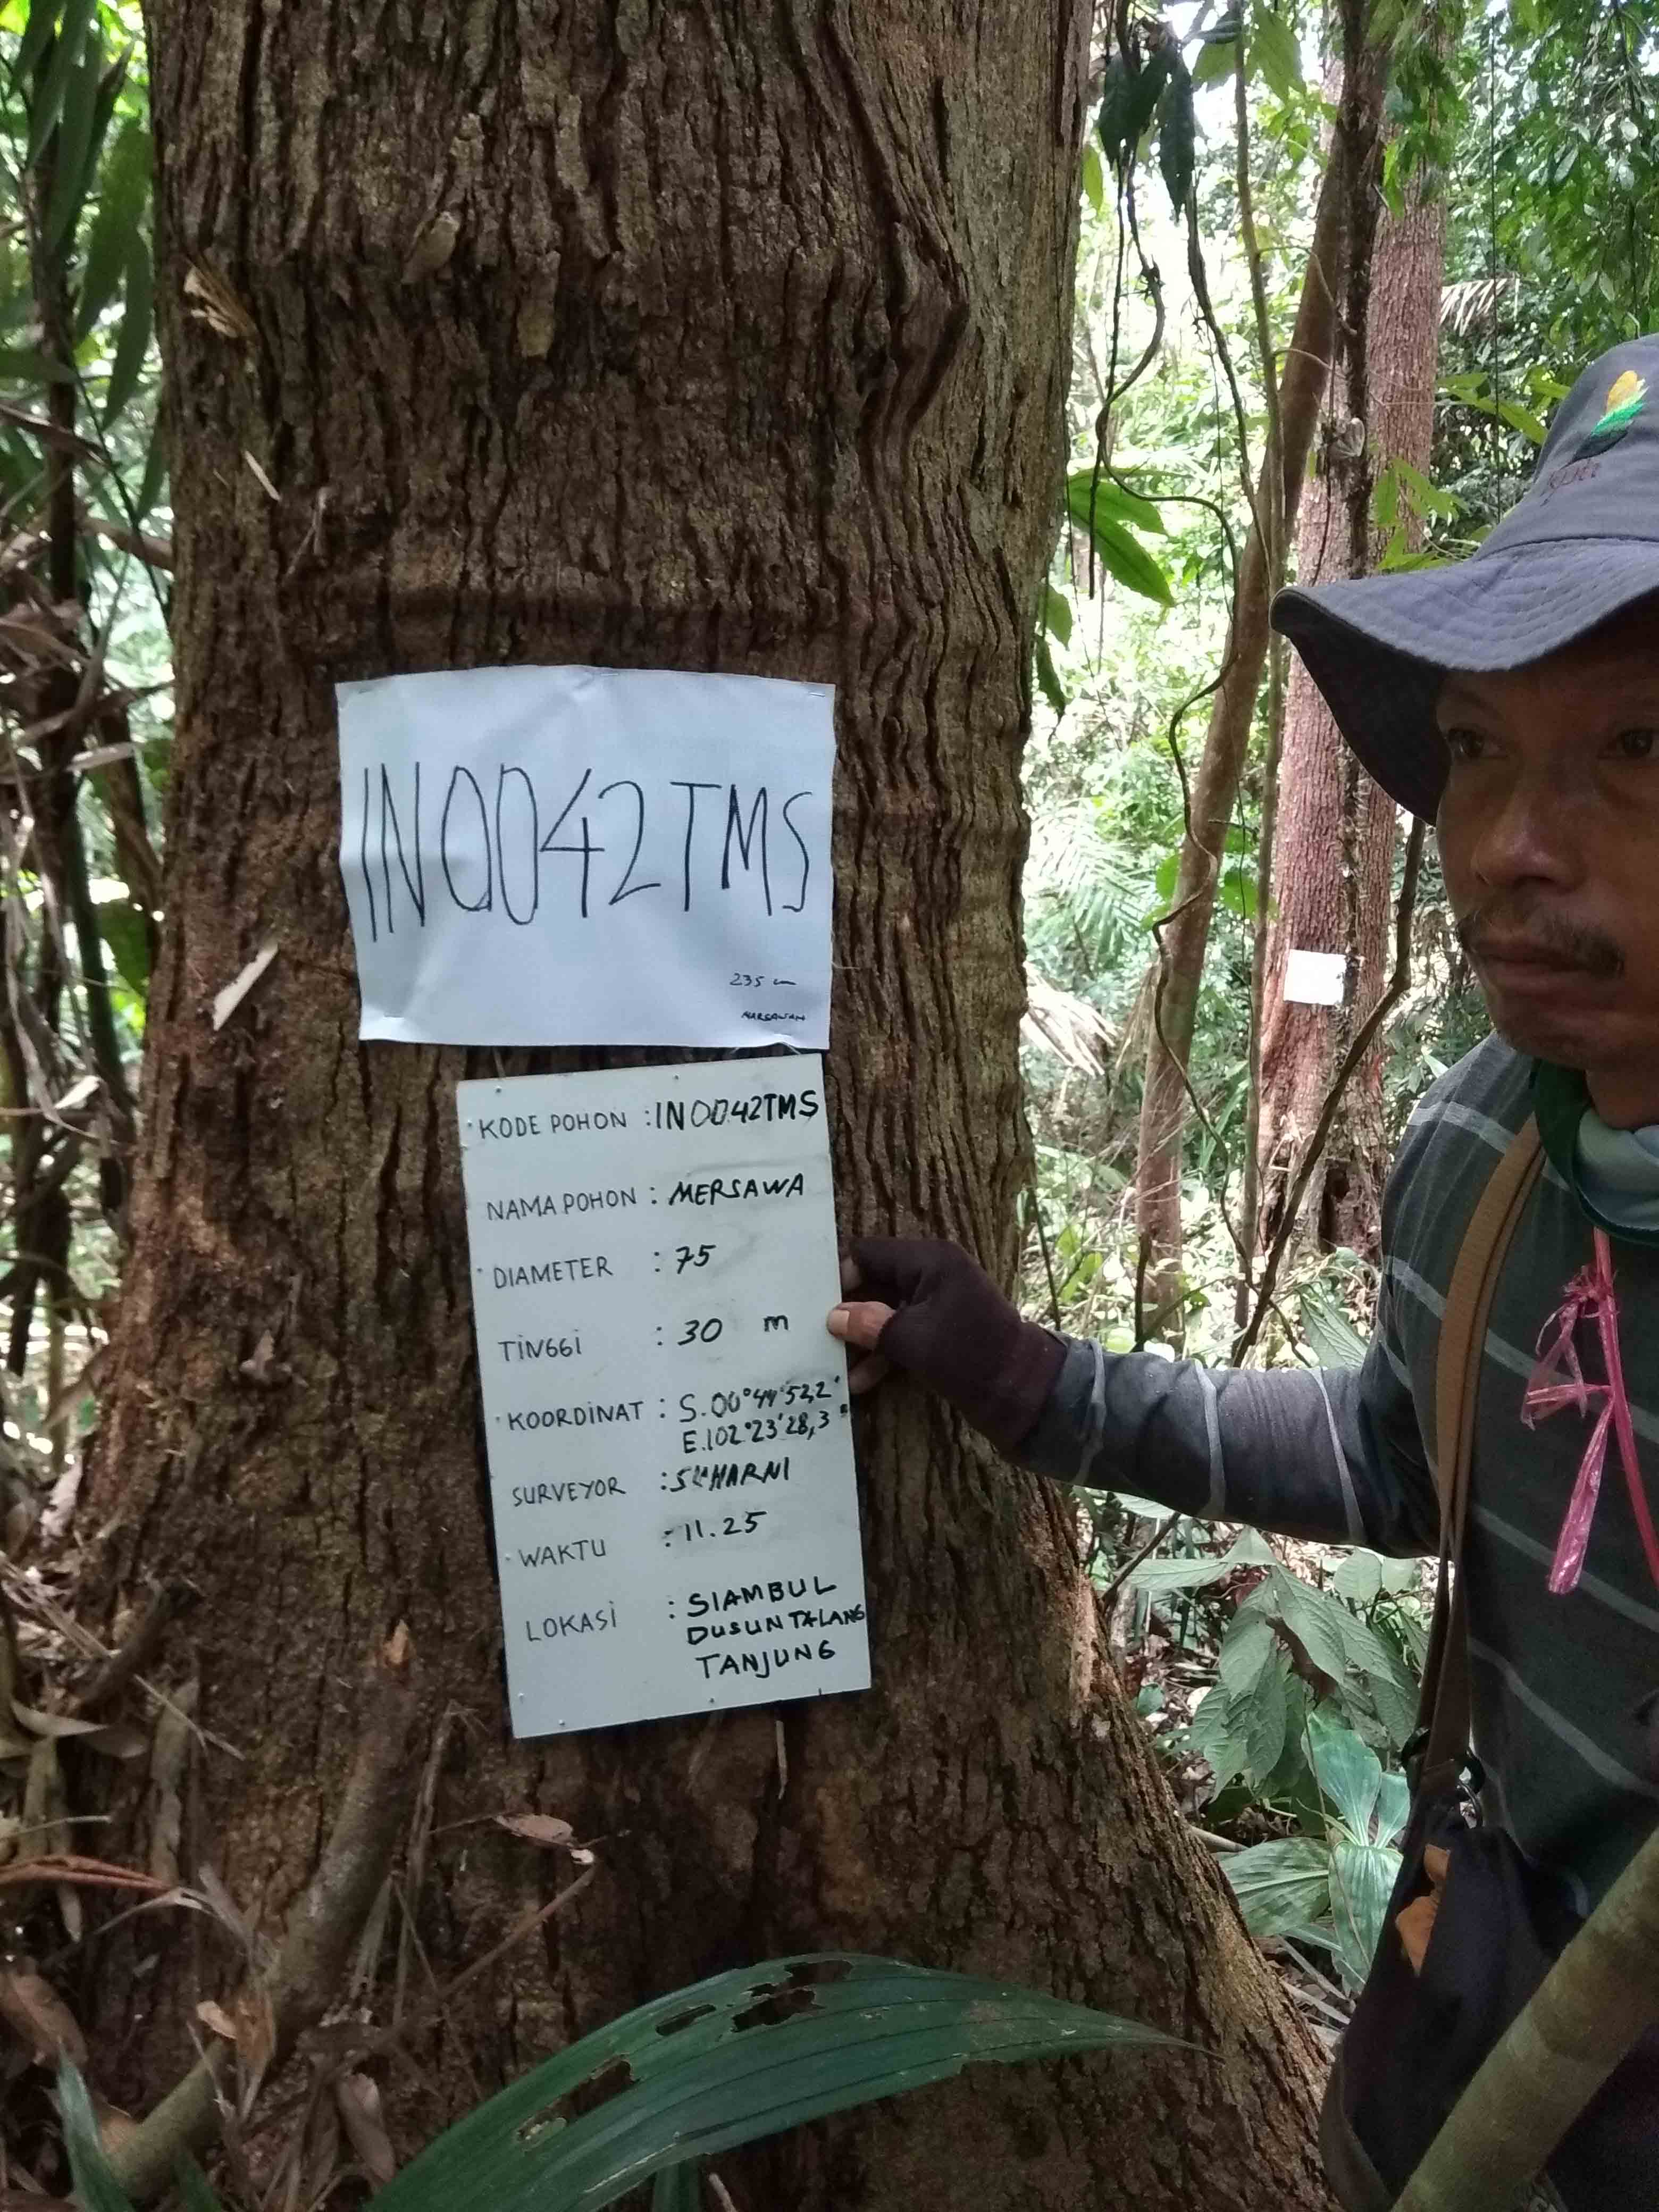 IN0042TMS
235 cm
MERSAWA
KODE POHON : IN0042TMS
NAMA POHON : MERSAWA
DIAMETER : 75
TINGGI : 30 m
KOORDINAT : S.00°44'53,2"
E.102°23'28,3"
SURVEYOR : SUHARNI
WAKTU : 11.25
LOKASI : SIAMBUL
DUSUN TALANG
TANJUNG